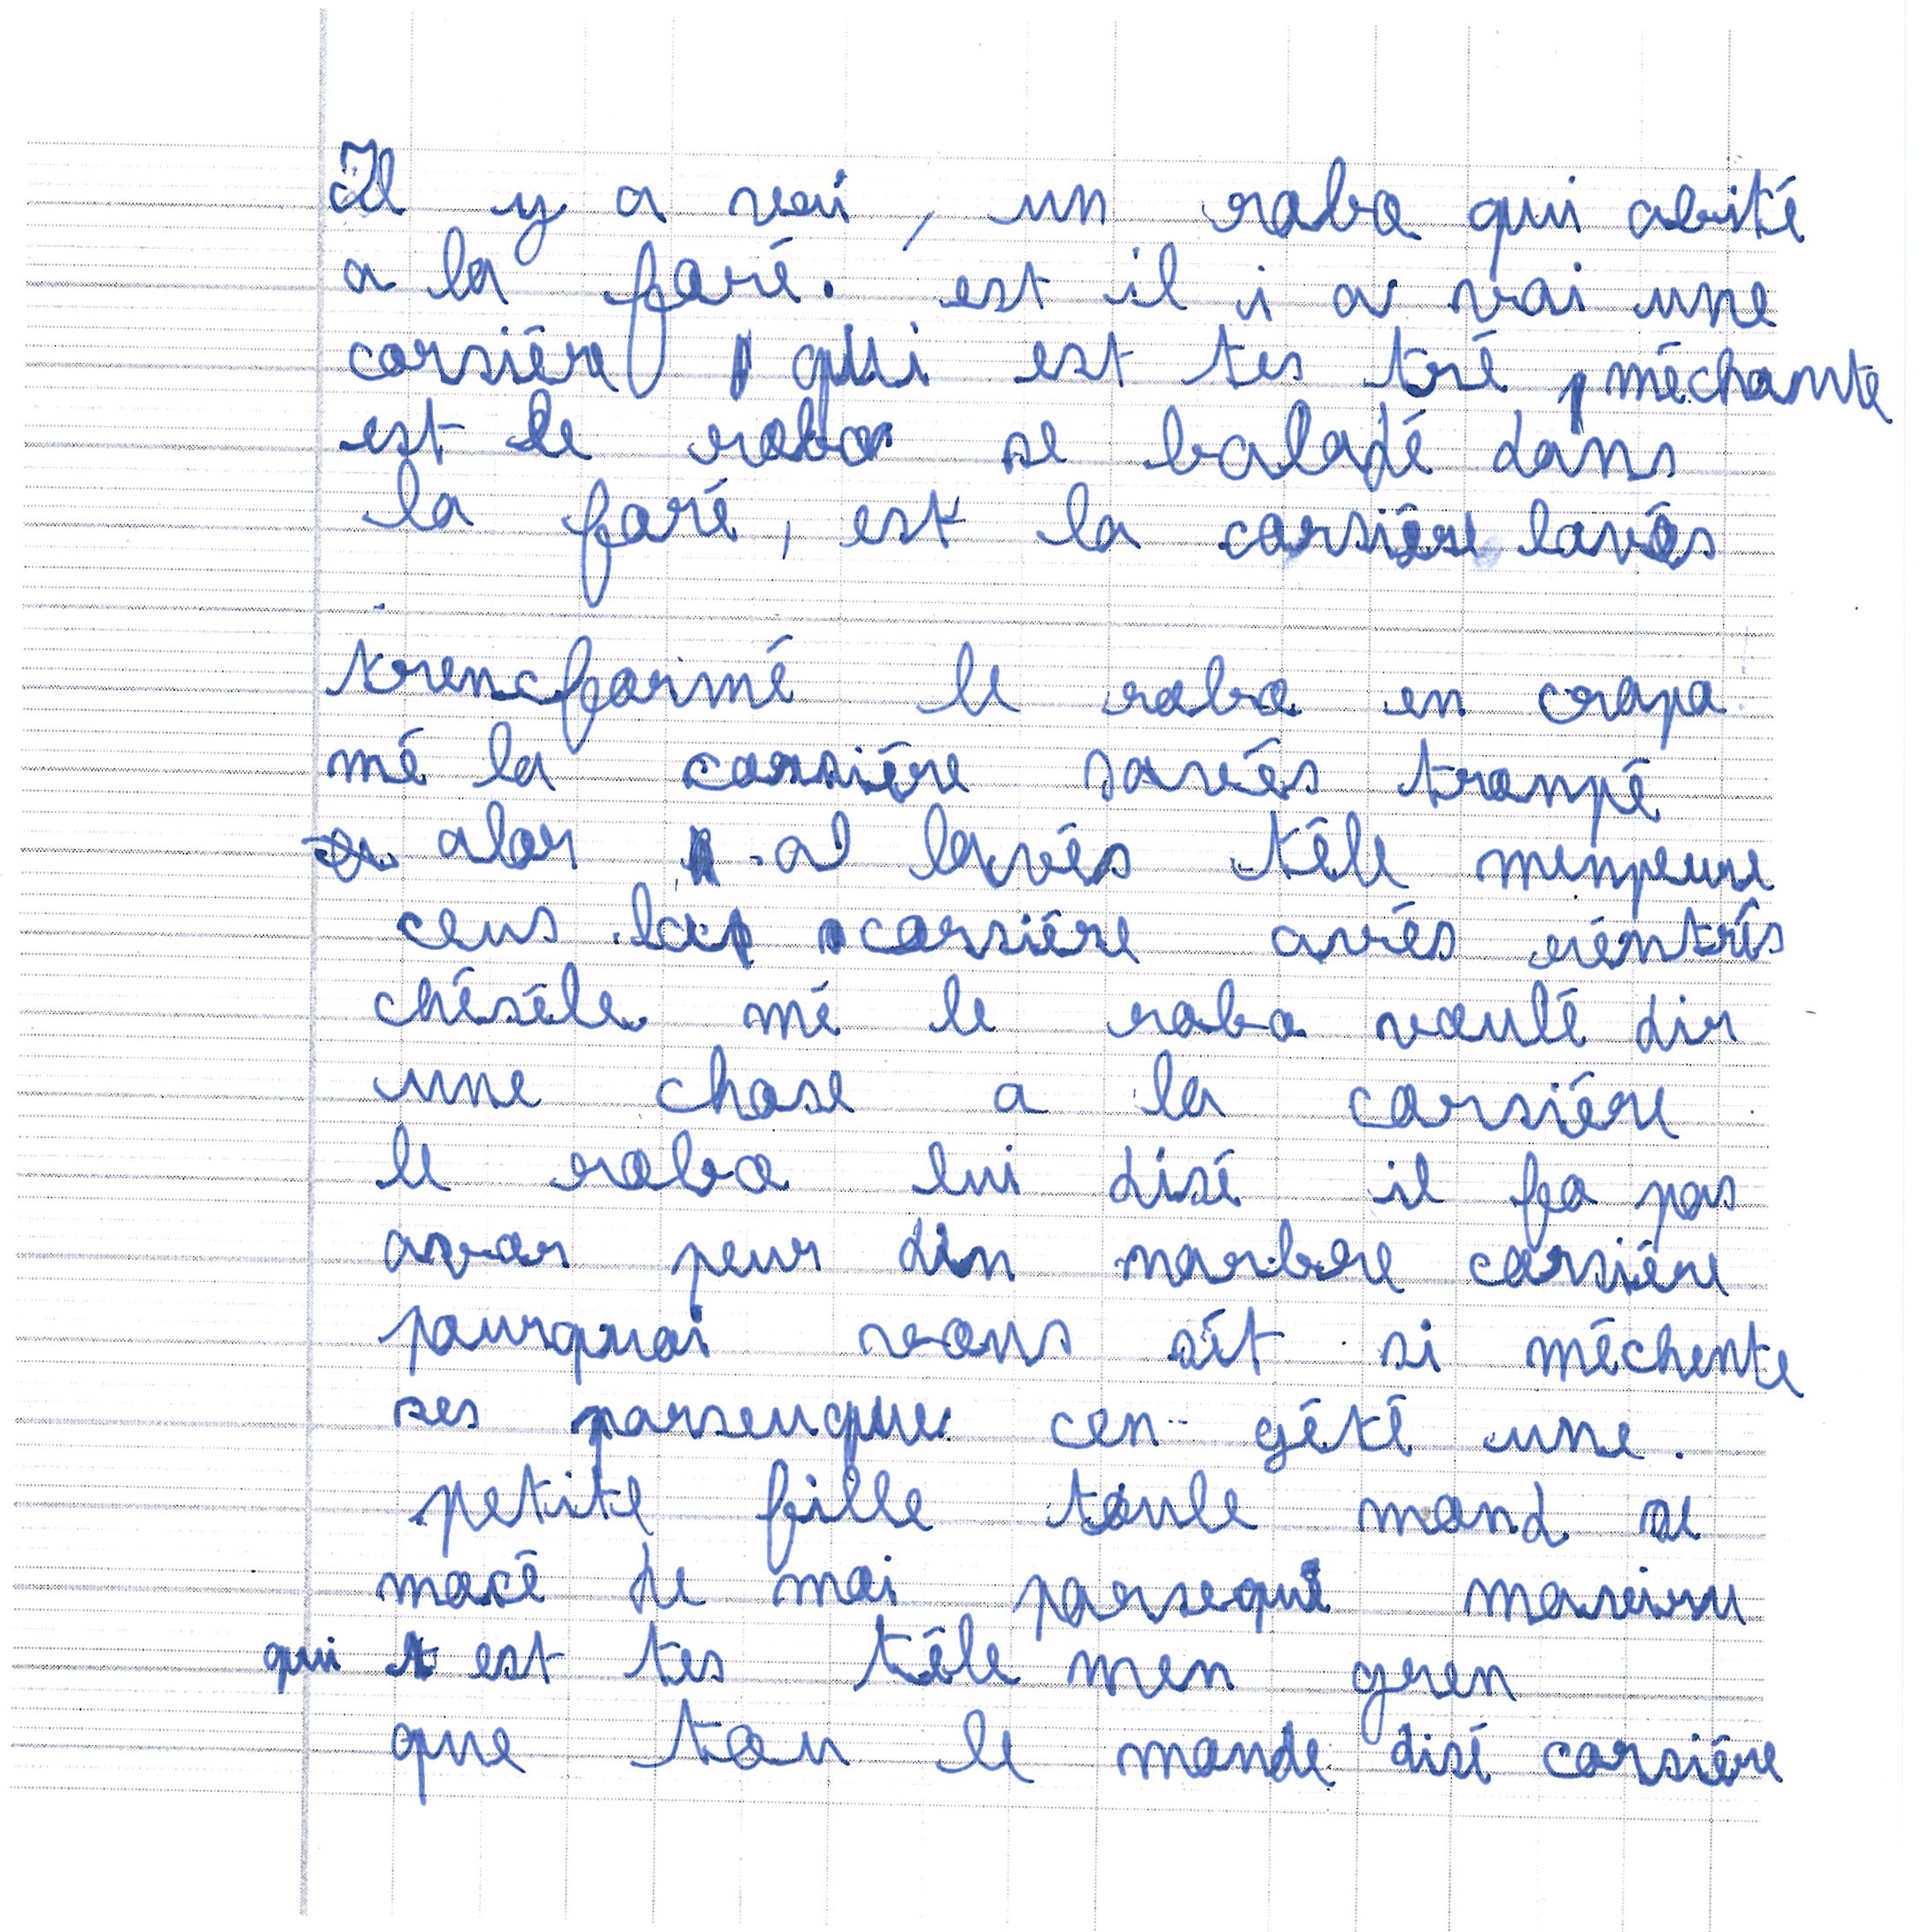 Il y a vai, un robo qui abité
a la foré. est il i a vai une
corsière qui est tes tré méchante
est le robo se baladé dans
la foré, est la corsière lavés
trencformé le robo en crapo
mé la corsière savés trompé
alor al lavés téle menpeure
ceus la corsiére avés rentrés
chéséle mé le robo voulé dir
une chose a la corsiére
le robo lui disé il fo pas
avoir peur din norbre corsiére
pourquoi vous sét si méchente
ses parseuque cen gété une
petite fille toule mond se
mocé de moi parseque
qui est tes téle men gren
que tou le monde disé corsiére